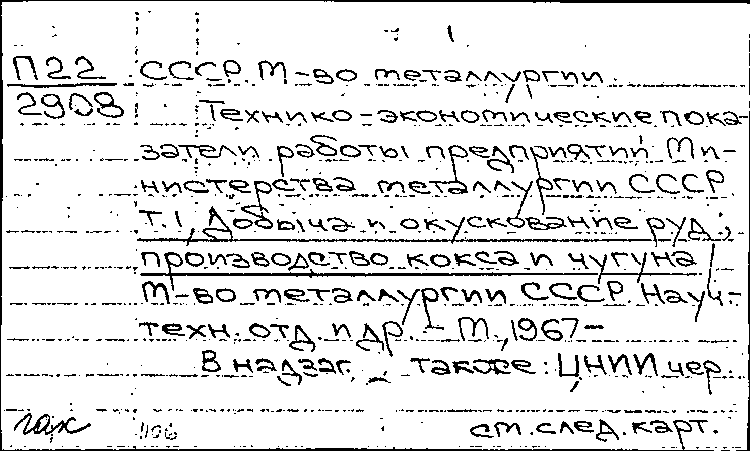 1
П22 СССР. М-во металлургии.
2908 Технико-экономические пока-
затели работы предприятий Ми-
нистерства металлургии СССР.
Т.1, Добыча и окускование руд;
производство кокса и чугуна /
М-во металлургии СССР. Науч.-
техн. отд. и др. – М., 1967–
В надзаг. также: ЦНИИ чер.
см. след. карт.